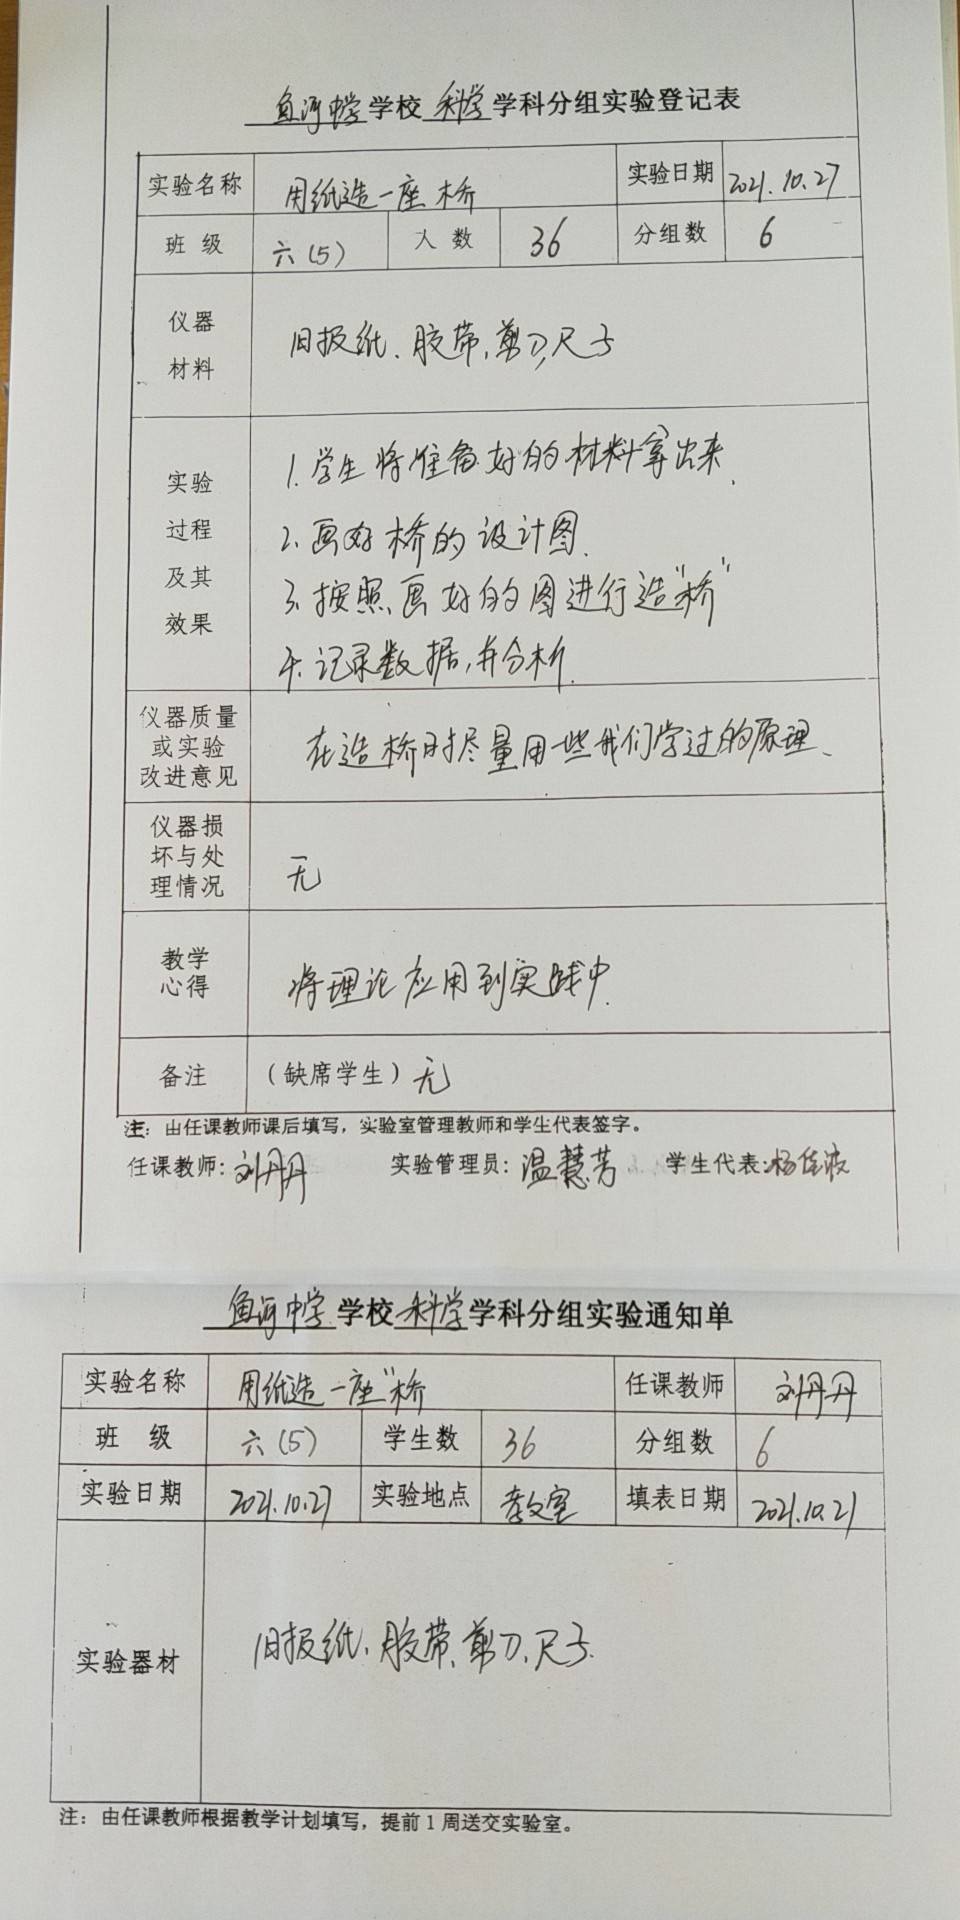 鱼河中学学校 科学学科分组实验登记表
实验名称 用纸造一座桥 实验日期 2021.10.27
班级 六(5) 人数 36 分组数 6
仪器
材料
旧报纸、胶带、剪刀、尺子
实验
过程
及其
效果
1.学生将准备好的材料拿出来.
2.画好桥的设计图.
3.按照画好的图进行造“桥”
4.记录数据,并分析.
仪器质量
或实验
改进意见
在造桥时尽量用一些我们学过的原理、
仪器损
坏与处
理情况
无
教学
心得
将理论应用到实践中.
备注 (缺席学生) 无
注: 由任课教师课后填写, 实验室管理教师和学生代表签字。
任课教师: 刘丹丹 实验管理员: 温慧芳 学生代表: 杨佳波
鱼河中学 学校 科学学科分组实验通知单
实验名称 用纸造一座“桥 任课教师 刘丹丹
班级 六(5) 学生数 36 分组数 6
实验日期 2021.10.27 实验地点 教室 填表日期 2021.10.21
实验器材 旧报纸、胶带、剪刀、尺子.
注: 由任课教师根据教学计划填写, 提前1周送交实验室。